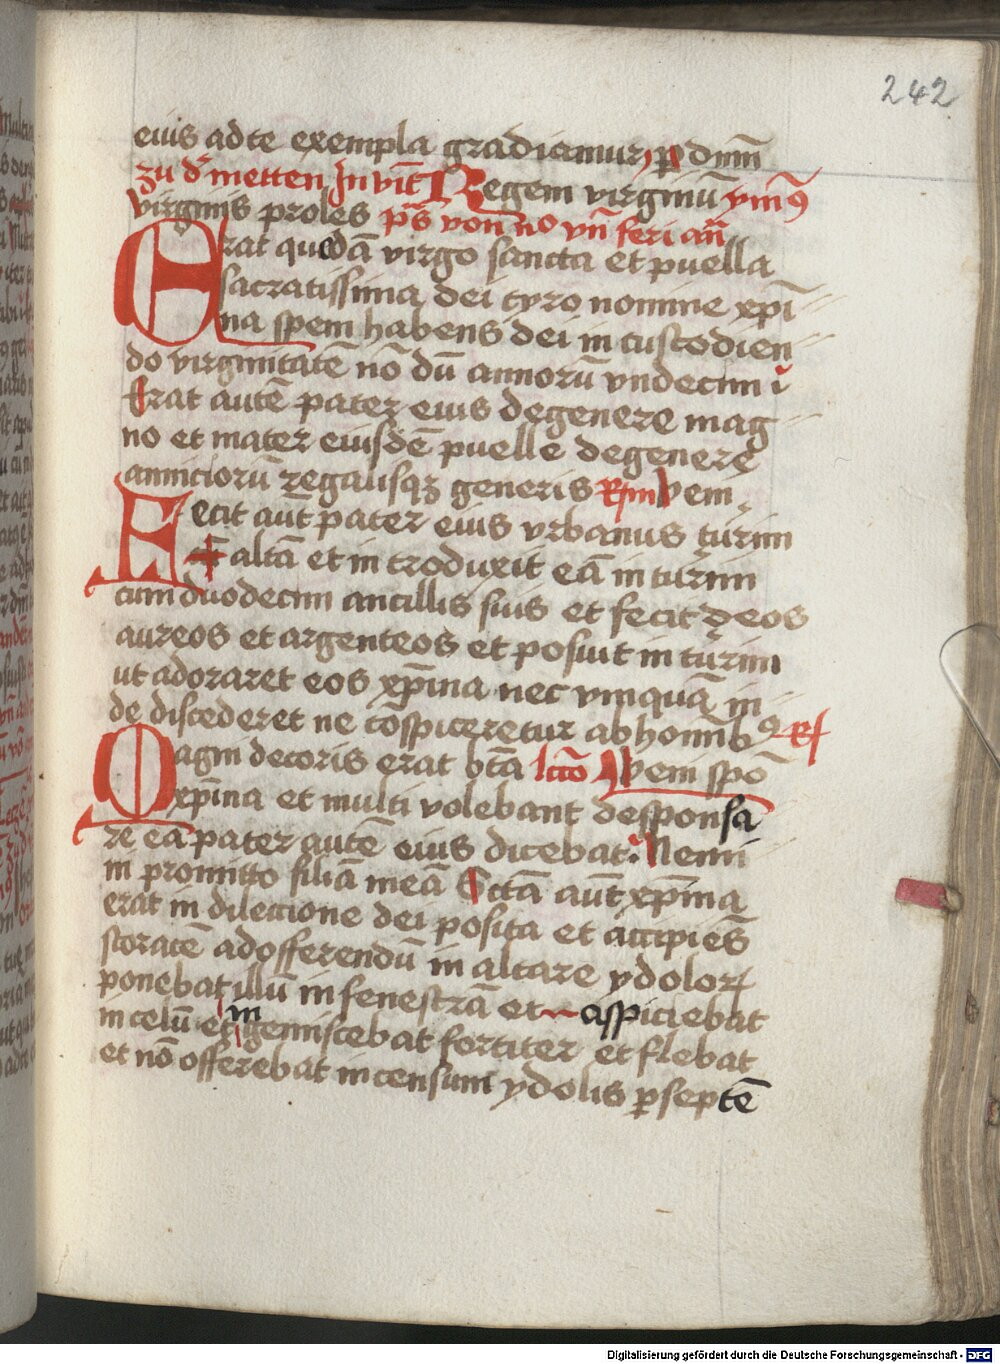 242
eius ad te exempla gradiamur p dnm
zu dˀ metten Invit Regem virginū ymꝰ
virginis proles ps von no vn feri an
Erat quedā virgo sancta et puella
sacratissima dei tyro nomine xpi
na spem habens dei in custodien
do virginitatē nō dū annorū vndecim
Erat autē pater eius de genere mag
no et mater eiusdē puelle de genere
anniciorū regalisqꝫ generis Rm Veni
Fecit aut pater eius vrbanus turim
altā et introduxit eā in turim
cum duodecim ancillis suis et fecit deos
aureos et argenteos et posuit in turim
ut adoraret eos xpina nec vmquā in
de discederet ne cōspiceretur ab homibꝰ R
Magni decoris erat bta lcco Veni spō
xpina et multi volebant desponsa
re eā pater autē eius dicebat Nemi
ni promitto filiā meā Sctā aut xpina
erat in dilectione dei posita et accipiēs
storacē ad offerendū in altare ydoloꝝ
ponebat illū in fenestrā et aspiciebat
in celū et in gemiscebat fortiter et flebat
et nō offerebat incensum ydolis p septē
Digitalisierung gefördert durch die Deutsche Forschungsgemeinschaft - DFG